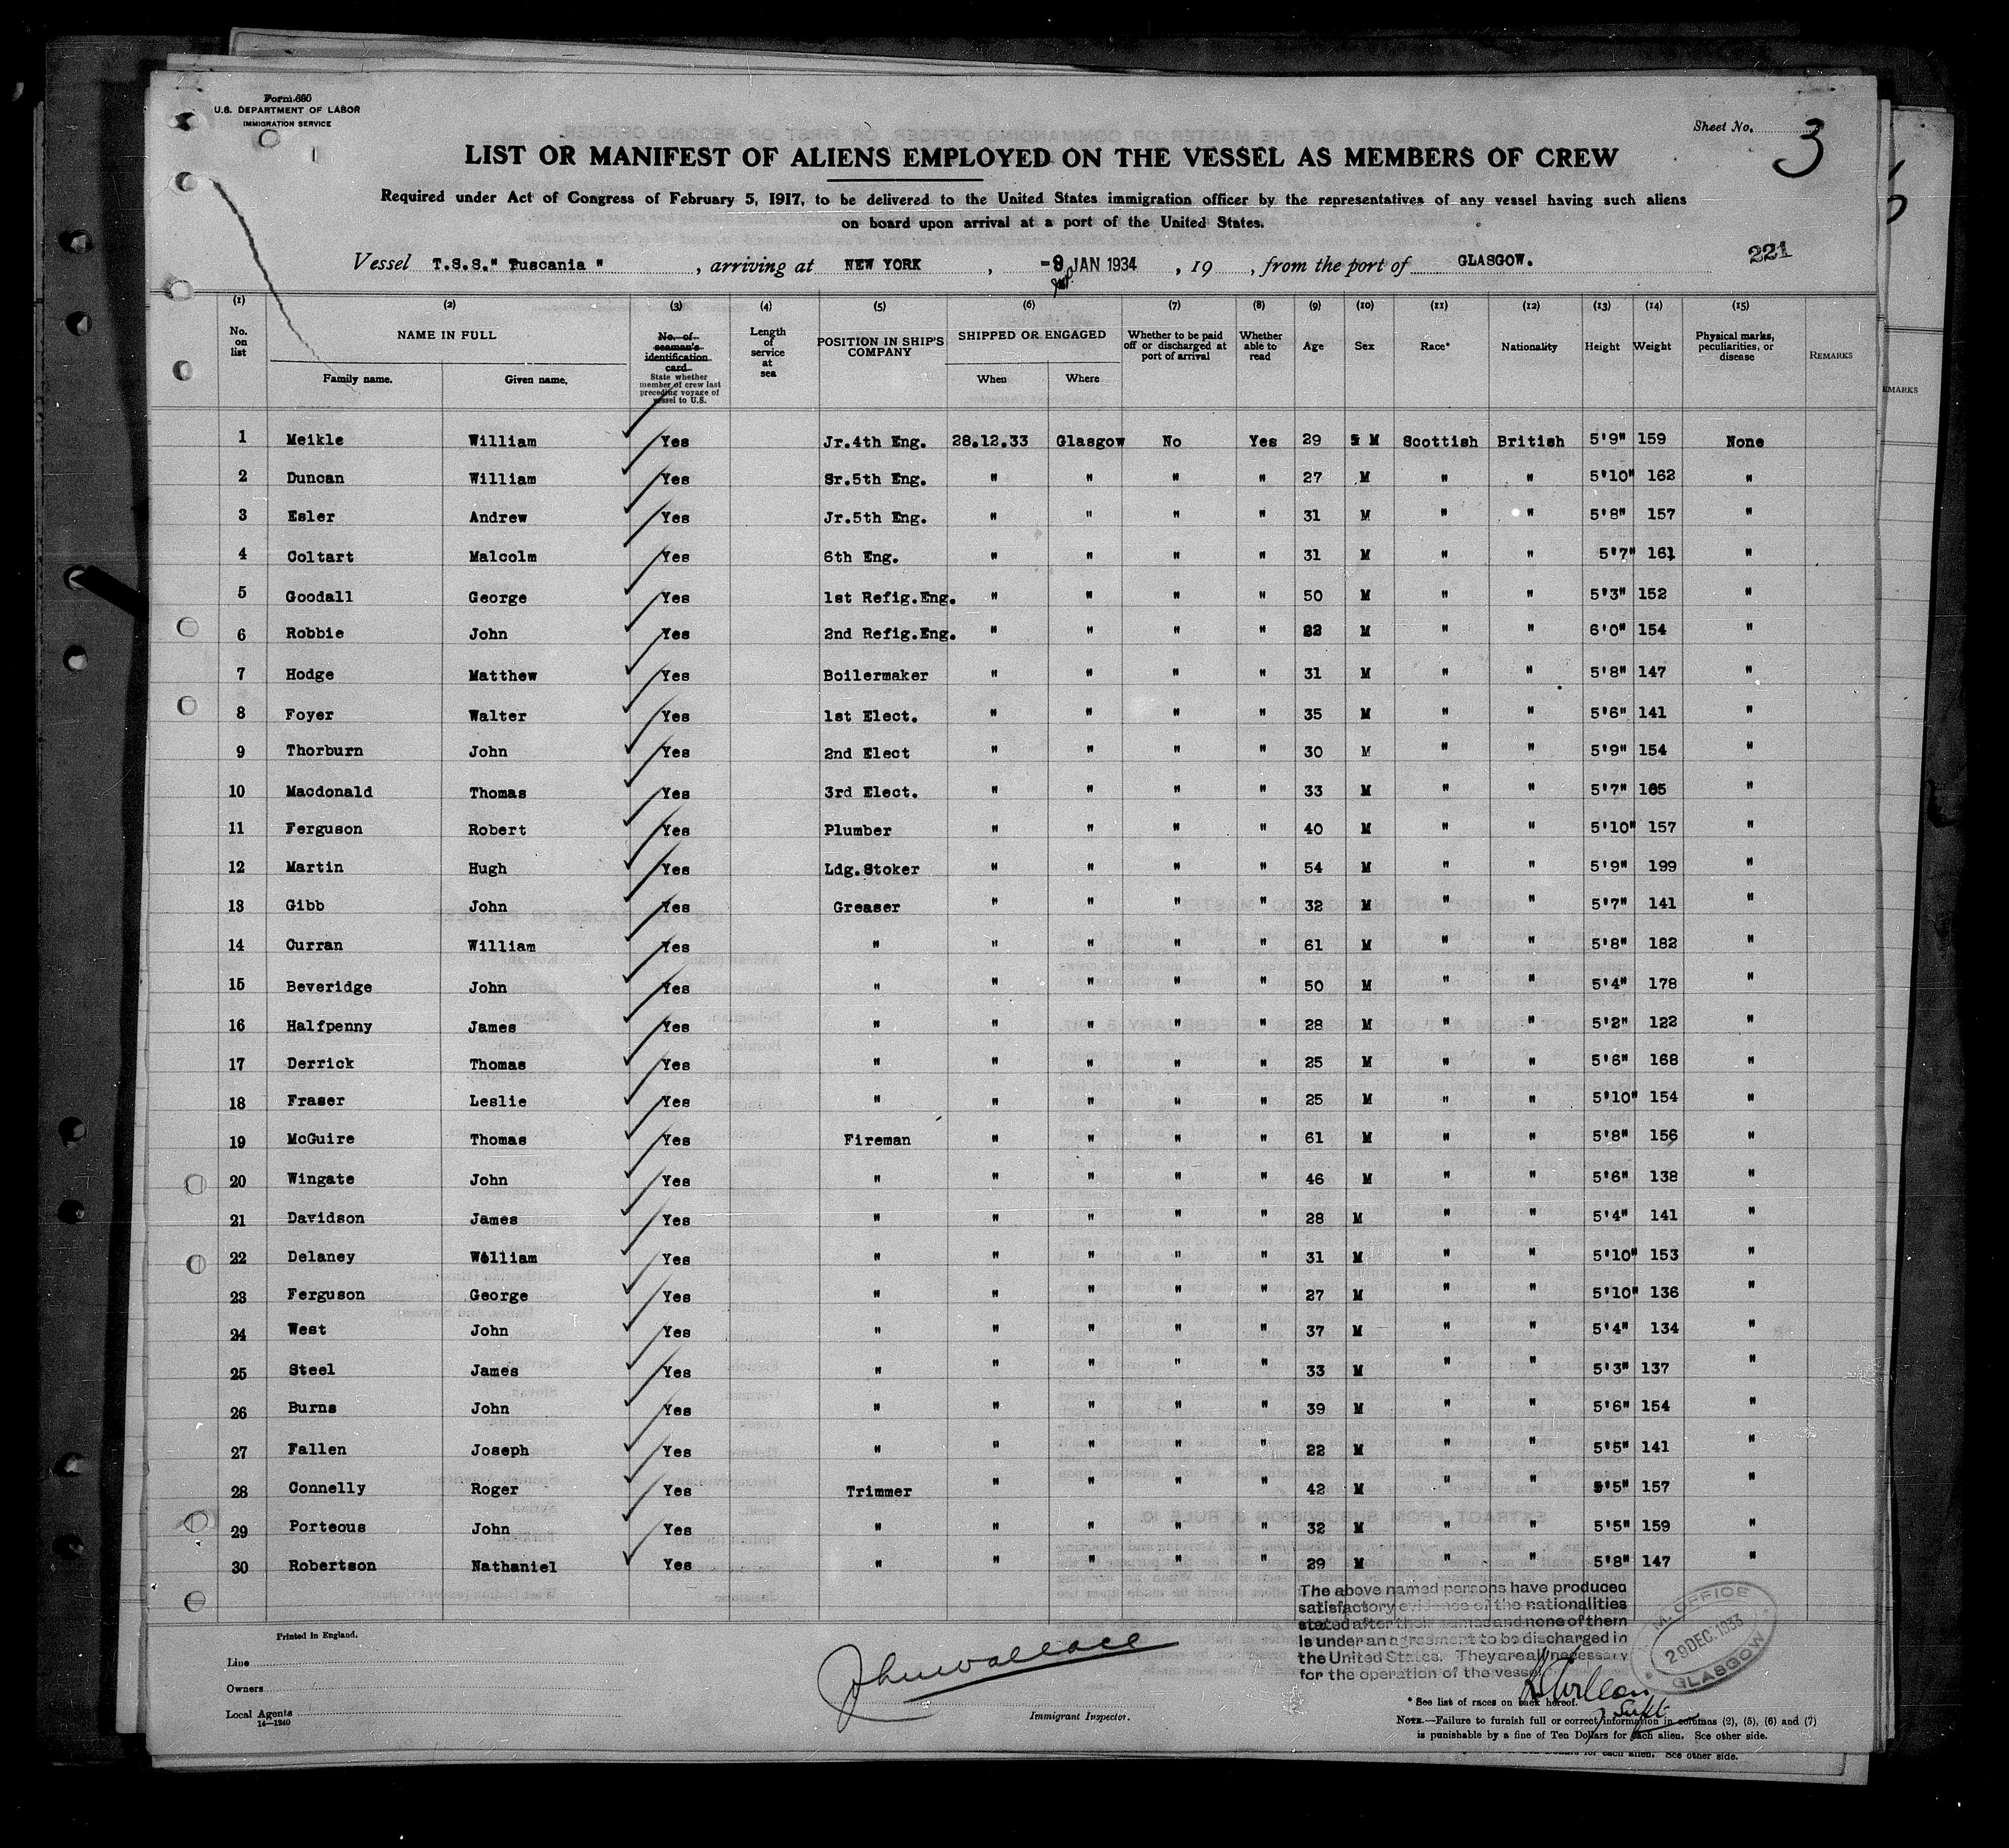 Form 680
U.S. DEPARTMENT OF LABOR
IMMIGRATION SERVICE
Sheet No. 3
LIST OR MANIFEST OF ALIENS EMPLOYED ON THE VESSEL AS MEMBERS OF CREW
Required under Act of Congress of February 5, 1917, to be delivered to the United States immigration officer by the representatives of any vessel having such aliens
on board upon arrival at a port of the United States.
221
Vessel T.S.S." Tuscania ", arriving at NEW YORK, -9 JAN 1934, 19 , from the port of GLASGOW.
(1) (2) (3) (4) (5) (6) (7) (8) (9) (10) (11) (12) (13) (14) (15)
No. on list NAME IN FULL Family name. Given name. No. of seaman's identification card State whether member of crew last preceding voyage of vessel to U.S. Length of service at sea POSITION IN SHIP'S COMPANY SHIPPED OR ENGAGED When Where Whether to be paid off or discharged at port of arrival Whether able to read Age Sex Race* Nationality Height Weight Physical marks, peculiarities, or disease REMARKS
1 Meikle William Yes Jr.4th Eng. 28.12.33 Glasgow No Yes 29 M Scottish British 5'9" 159 None
2 Duncan William Yes Sr.5th Eng. " " " " 27 M " " 5'10" 162 "
3 Esler Andrew Yes Jr.5th Eng. " " " " 31 M " " 5'8" 157 "
4 Coltart Malcolm Yes 6th Eng. " " " " 31 M " " 5'7" 161 "
5 Goodall George Yes 1st Refig.Eng. " " " " 50 M " " 5'3" 152 "
6 Robbie John Yes 2nd Refig.Eng. " " " " M " " 6'0" 154 "
7 Hodge Matthew Yes Boilermaker " " " " 31 M " " 5'8" 147 "
8 Foyer Walter Yes 1st Elect. " " " " 35 M " " 5'6" 141 "
9 Thorburn John Yes 2nd Elect " " " " 30 M " " 5'9" 154 "
10 Macdonald Thomas Yes 3rd Elect. " " " " 33 M " " 5'7" "
11 Ferguson Robert Yes Plumber " " " " 40 M " " 5'10" 157 "
12 Martin Hugh Yes Ldg.Stoker " " " " 54 M " " 5'9" 199 "
13 Gibb John Yes Greaser " " " " 32 M " " 5'7" 141 "
14 Curran William Yes " " " " " 61 M " " 5'8" 182 "
15 Beveridge John Yes " " " " " 50 M " " 5'4" 178 "
16 Halfpenny James Yes " " " " " 28 M " " 5'2" 122 "
17 Derrick Thomas Yes " " " " " 25 M " " 5'6" 168 "
18 Fraser Leslie Yes " " " " " 25 M " " 5'10" 154 "
19 McGuire Thomas Yes Fireman " " " " 61 M " " 5'8" 156 "
20 Wingate John Yes " " " " " 46 M " " 5'6" 138 "
21 Davidson James Yes " " " " " 28 M " " 5'4" 141 "
22 Delaney William Yes " " " " " 31 M " " 5'10" 153 "
23 Ferguson George Yes " " " " " 27 M " " 5'10" 136 "
24 West John Yes " " " " " 37 M " " 5'4" 134 "
25 Steel James Yes " " " " " 33 M " " 5'3" 137 "
26 Burns John Yes " " " " " 39 M " " 5'6" 154 "
27 Fallen Joseph Yes " " " " " 22 M " " 5'5" 141 "
28 Connelly Roger Yes Trimmer " " " " 42 M " " 5'5" 157 "
29 Porteous John Yes " " " " " 32 M " " 5'5" 159 "
30 Robertson Nathaniel Yes " " " " " 29 M " " 5'8" 147 "
The above named persons have produced
satisfactory evidence of the nationalities
stated after their names and none of them
is under an agreement to be discharged in
the United States. They are all necessary
for the operation of the vessel
IM. OFFICE
29 DEC. 1933
GLASGOW
Printed in England.
Line
Owners
Local Agents
14—1240
Jhn Wallace
Immigrant Inspector.
Supt
* See list of races on back hereof.
NOTE.—Failure to furnish full or correct information in columns (2), (5), (6) and (7)
is punishable by a fine of Ten Dollars for each alien. See other side.
for each alien. See other side.
EMARKS